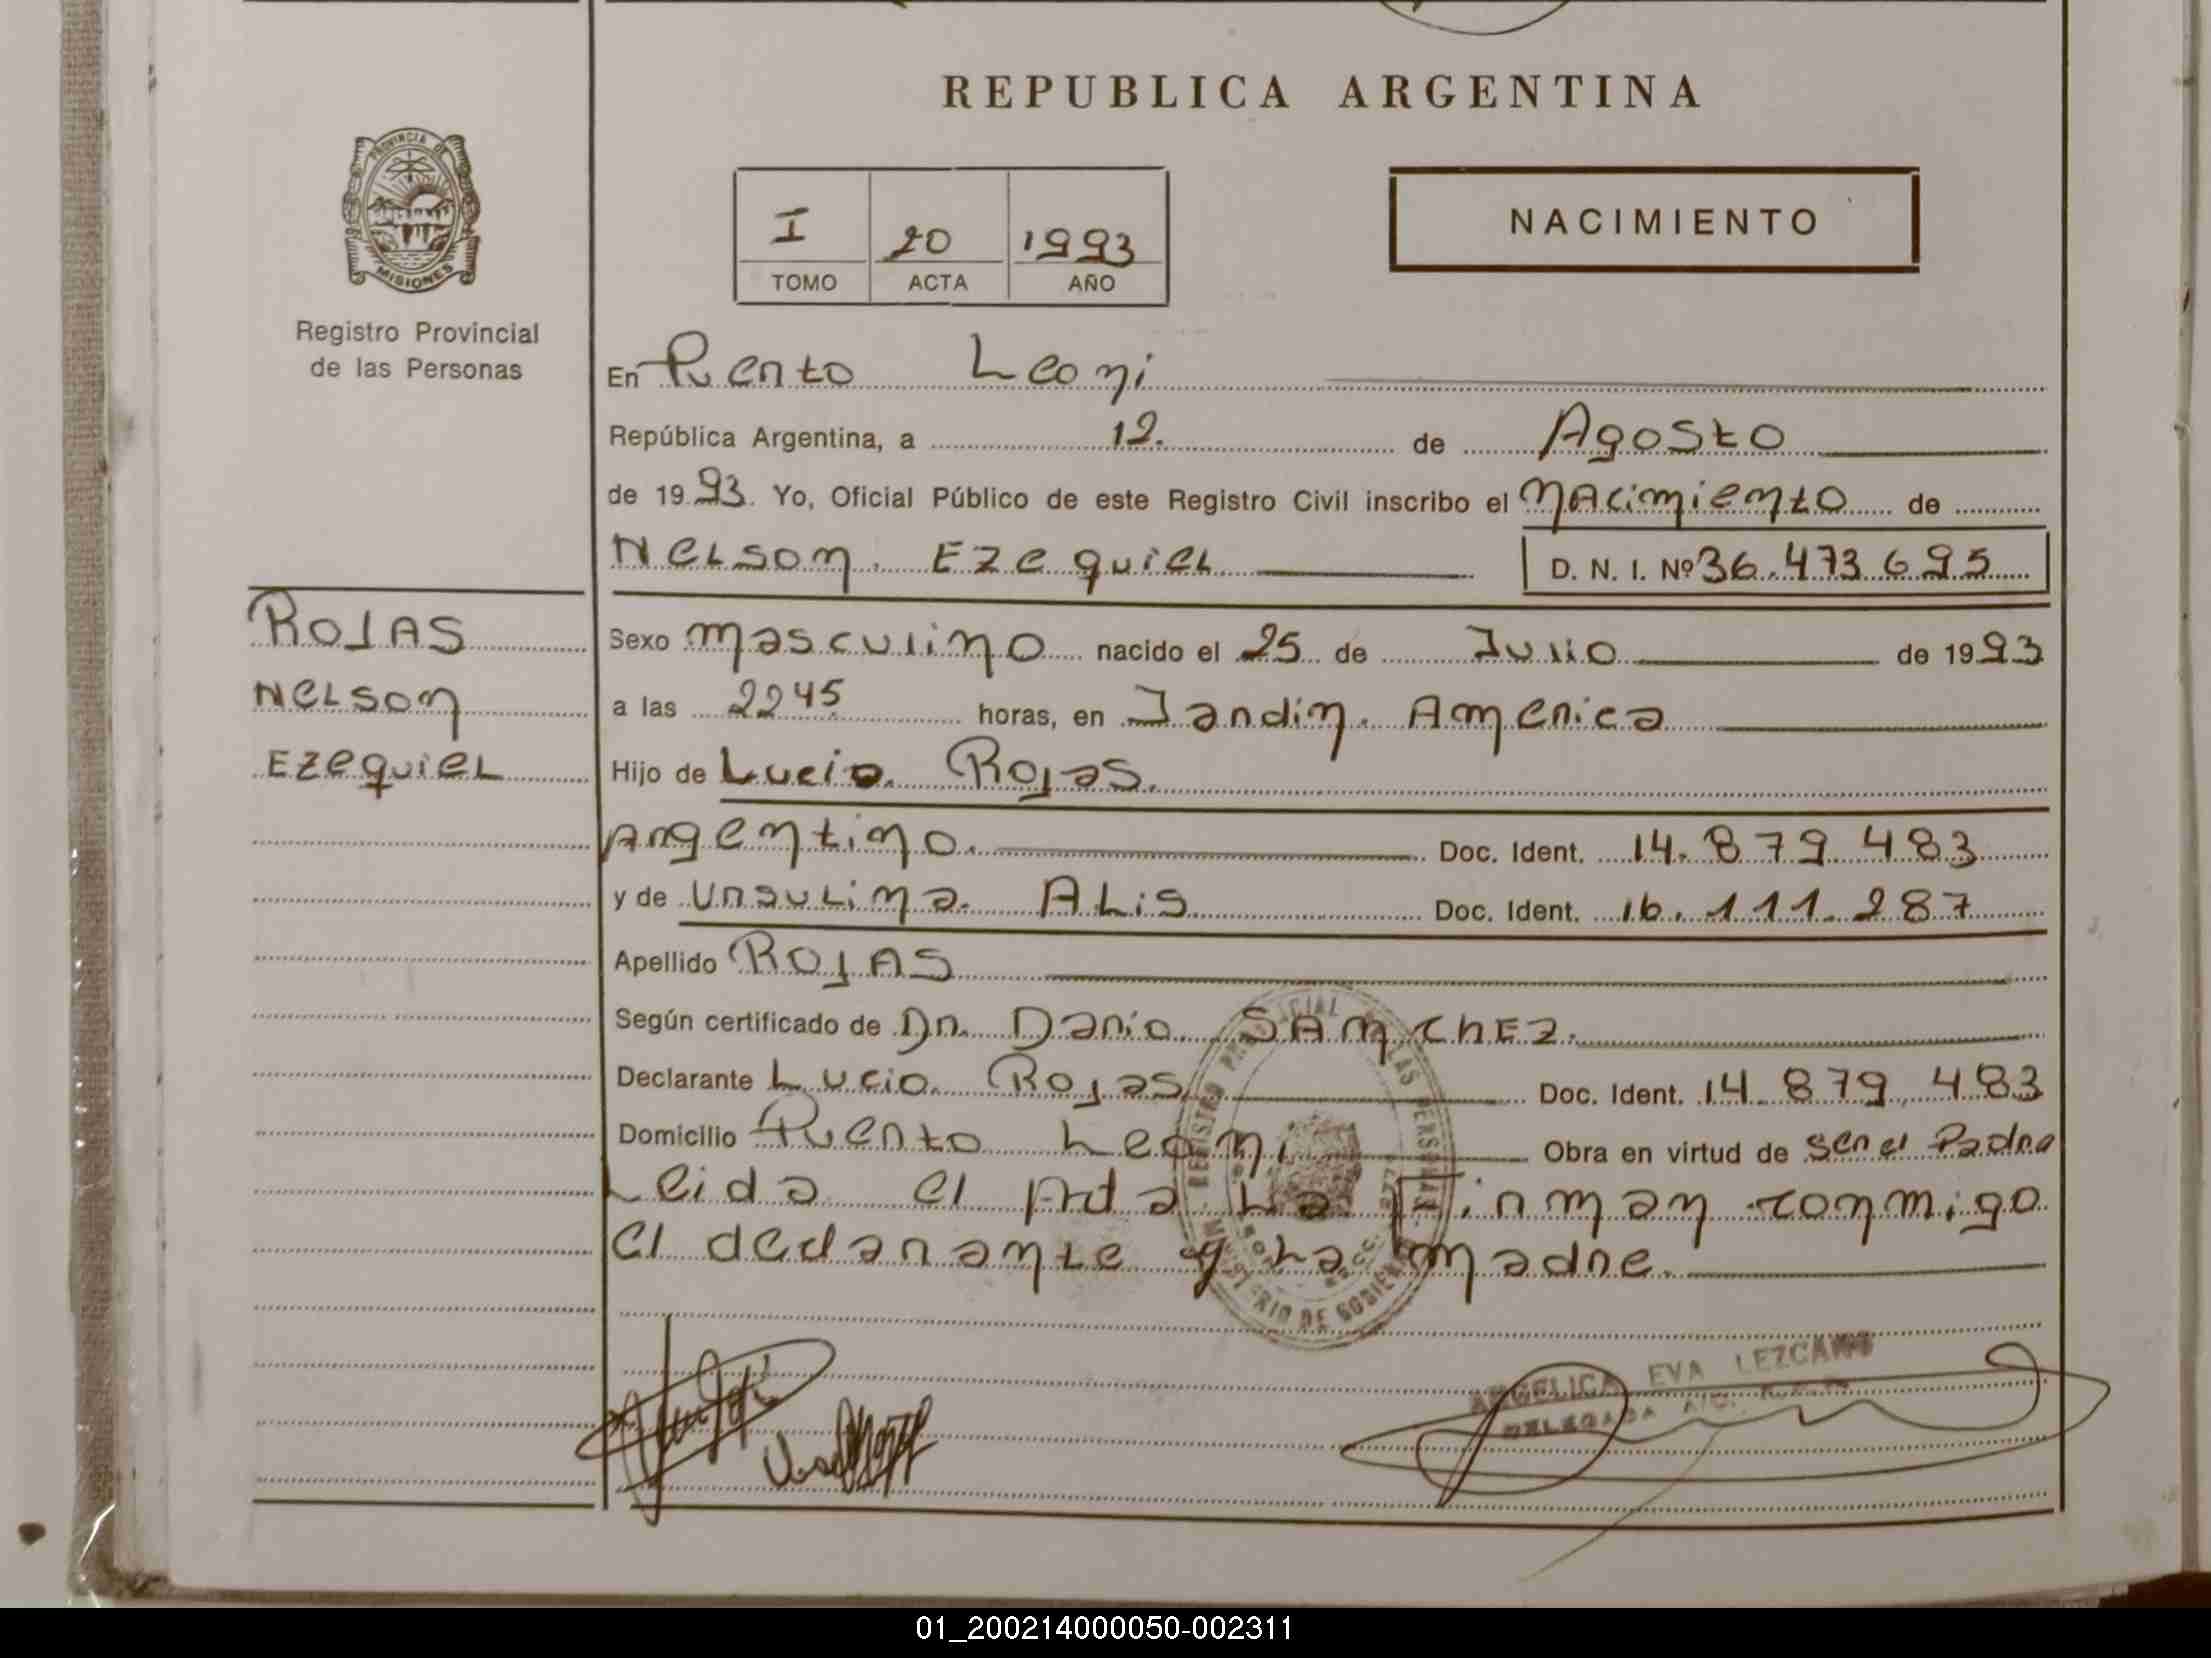 REPUBLICA ARGENTINA
PROVINCIA DE
MISIONES
Registro Provincial
de las Personas
I 20 1993
TOMO ACTA AÑO
NACIMIENTO
En Puerto Leoni
República Argentina, a 12. de Agosto
de 1993. Yo, Oficial Público de este Registro Civil inscribo el nacimiento de
NELSON EZEQUIEL D. N. I. Nº 36.473 695
ROJAS
NELSON
EZEQUIEL
Sexo masculino nacido el 25 de Julio de 1993
a las 2245 horas, en Jardin America
Hijo de Lucio Rojas.
Argentino. Doc. Ident. 14.879 483
y de Ursulina ALis Doc. Ident. 16.111.287
Apellido ROJAS
Según certificado de Dr. Dario SANCHEZ.
Declarante Lucio Rojas Doc. Ident. 14.879.483
Domicilio Puerto Leoni Obra en virtud de ser el Padre
Leida el Acta La Firman conmigo
el declarante y La madre.
REGISTRO PROVINCIAL DE LAS PERSONAS
MINISTERIO DE GOBIERNO
ANGELICA EVA LEZCANO
DELEGADA
01_200214000050-002311